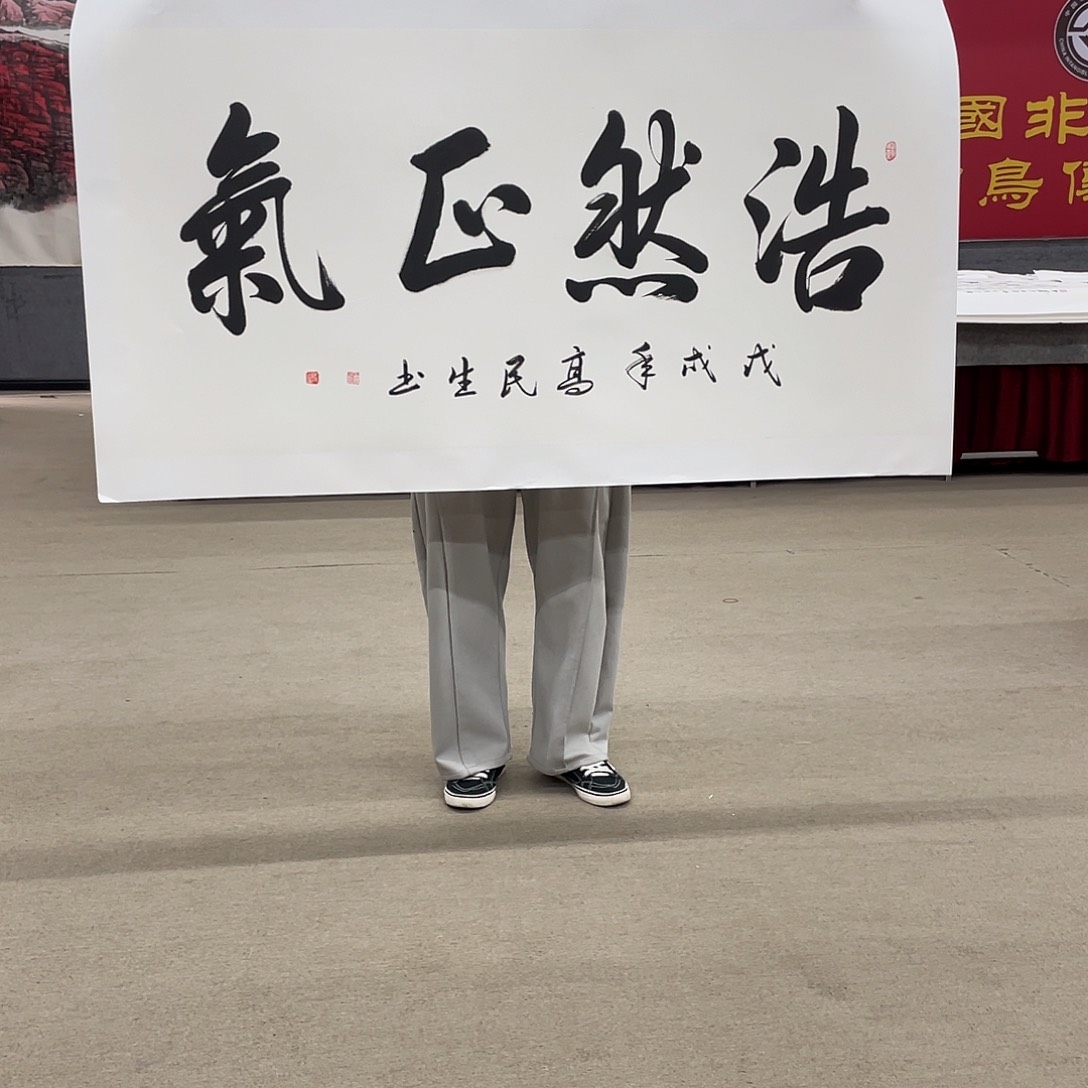 浩然正氣
戊戌年高民生书
國非
鳥